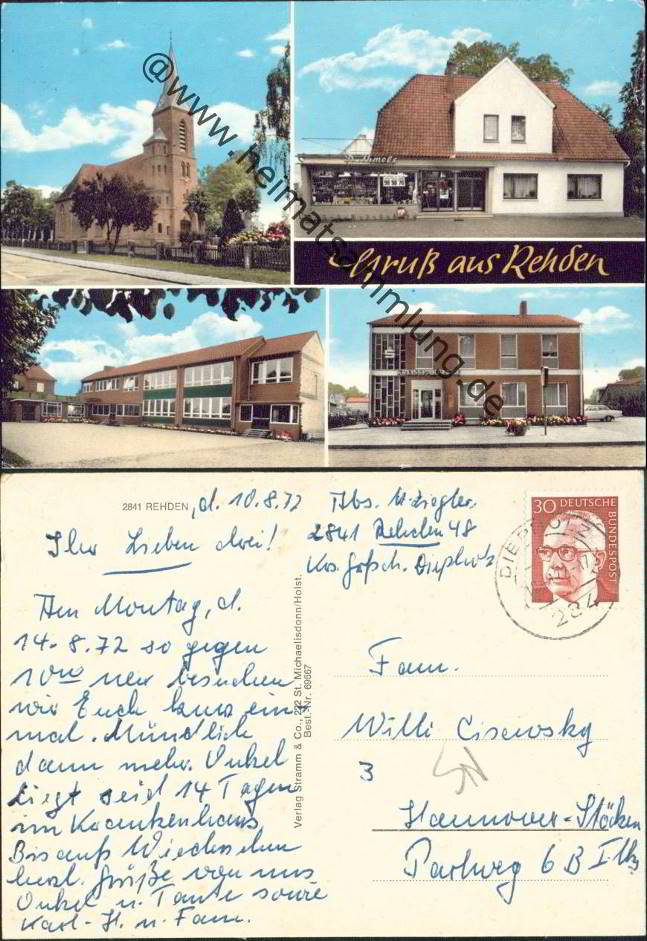 @www.heimatsammlung.de
Gruß aus Rehden
2841 REHDEN
, d. 10.8.72
Abs. H. Ziegler
2841 Rehden 48
Krs. Grfsch. Diepholz
30 DEUTSCHE BUNDESPOST
DIEPHOLZ
284
Ihr Lieben drei!
Am Montag, d.
14-8.72 so gegen
10 uhr
besuchen
wir Euch kurz ein
mal. Mündlich
dann mehr. Onkel
liegt seid 14 Tagen
im Krankenhaus
Bis aufs Wiedersehen
herzl. Grüße von uns
Onkel u. Tante sowie
Karl-H. u. Fam.
Verlag Stramm & Co., 222 St. Michaelisdonn/Holst.
Best. Nr. 69667
Fam.
Willi Cisewsky
3
Hannover-Stöcken
Parlweg 6 B